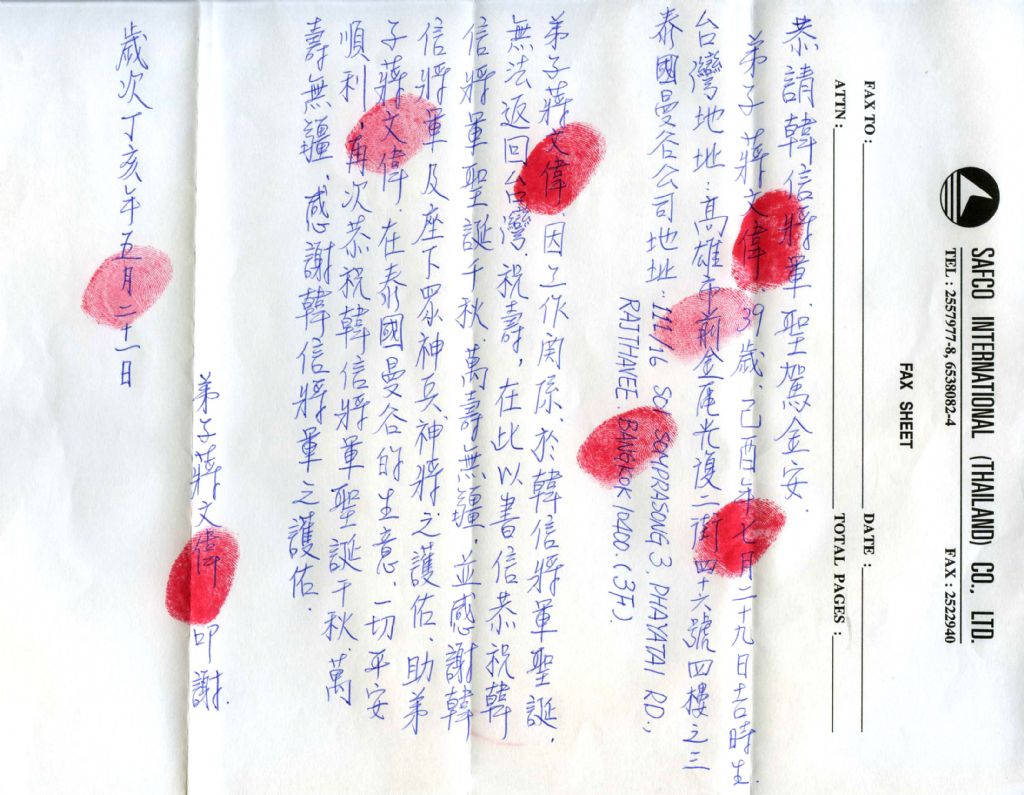 SAFCO INTERNATIONAL (THAILAND) CO., LTD.
TEL : 2557977-8, 6538082-4 FAX : 2522940
FAX SHEET
FAX TO : DATE :
ATTN : TOTAL PAGES :
恭請韓信將軍.聖駕金安.
弟子 蔣文偉 39歲.己酉年七月二十九日吉時生.
台灣地址:高雄市前金區光復二街四十六號四樓之三
泰國曼谷公司地址:111/16 SOI SOMPRASONG 3. PHAYATAI RD.,
RAJTHAVEE. BANGKOK 10400. (3F).
弟子蔣文偉.因工作関係.於韓信將軍聖誕.
無法返回台灣.祝壽,在此以書信恭祝韓
信將軍聖誕千秋.萬壽無疆.並感謝韓
信將軍及座下眾神兵.神將.之護佑、助弟
子蔣文偉.在泰國曼谷的生意.一切平安
順利,再次恭祝韓信將軍聖誕千秋.萬
壽無疆.感謝韓信將軍之護佑.
弟子蔣文偉 叩謝.
歲次丁亥年五月二十一日